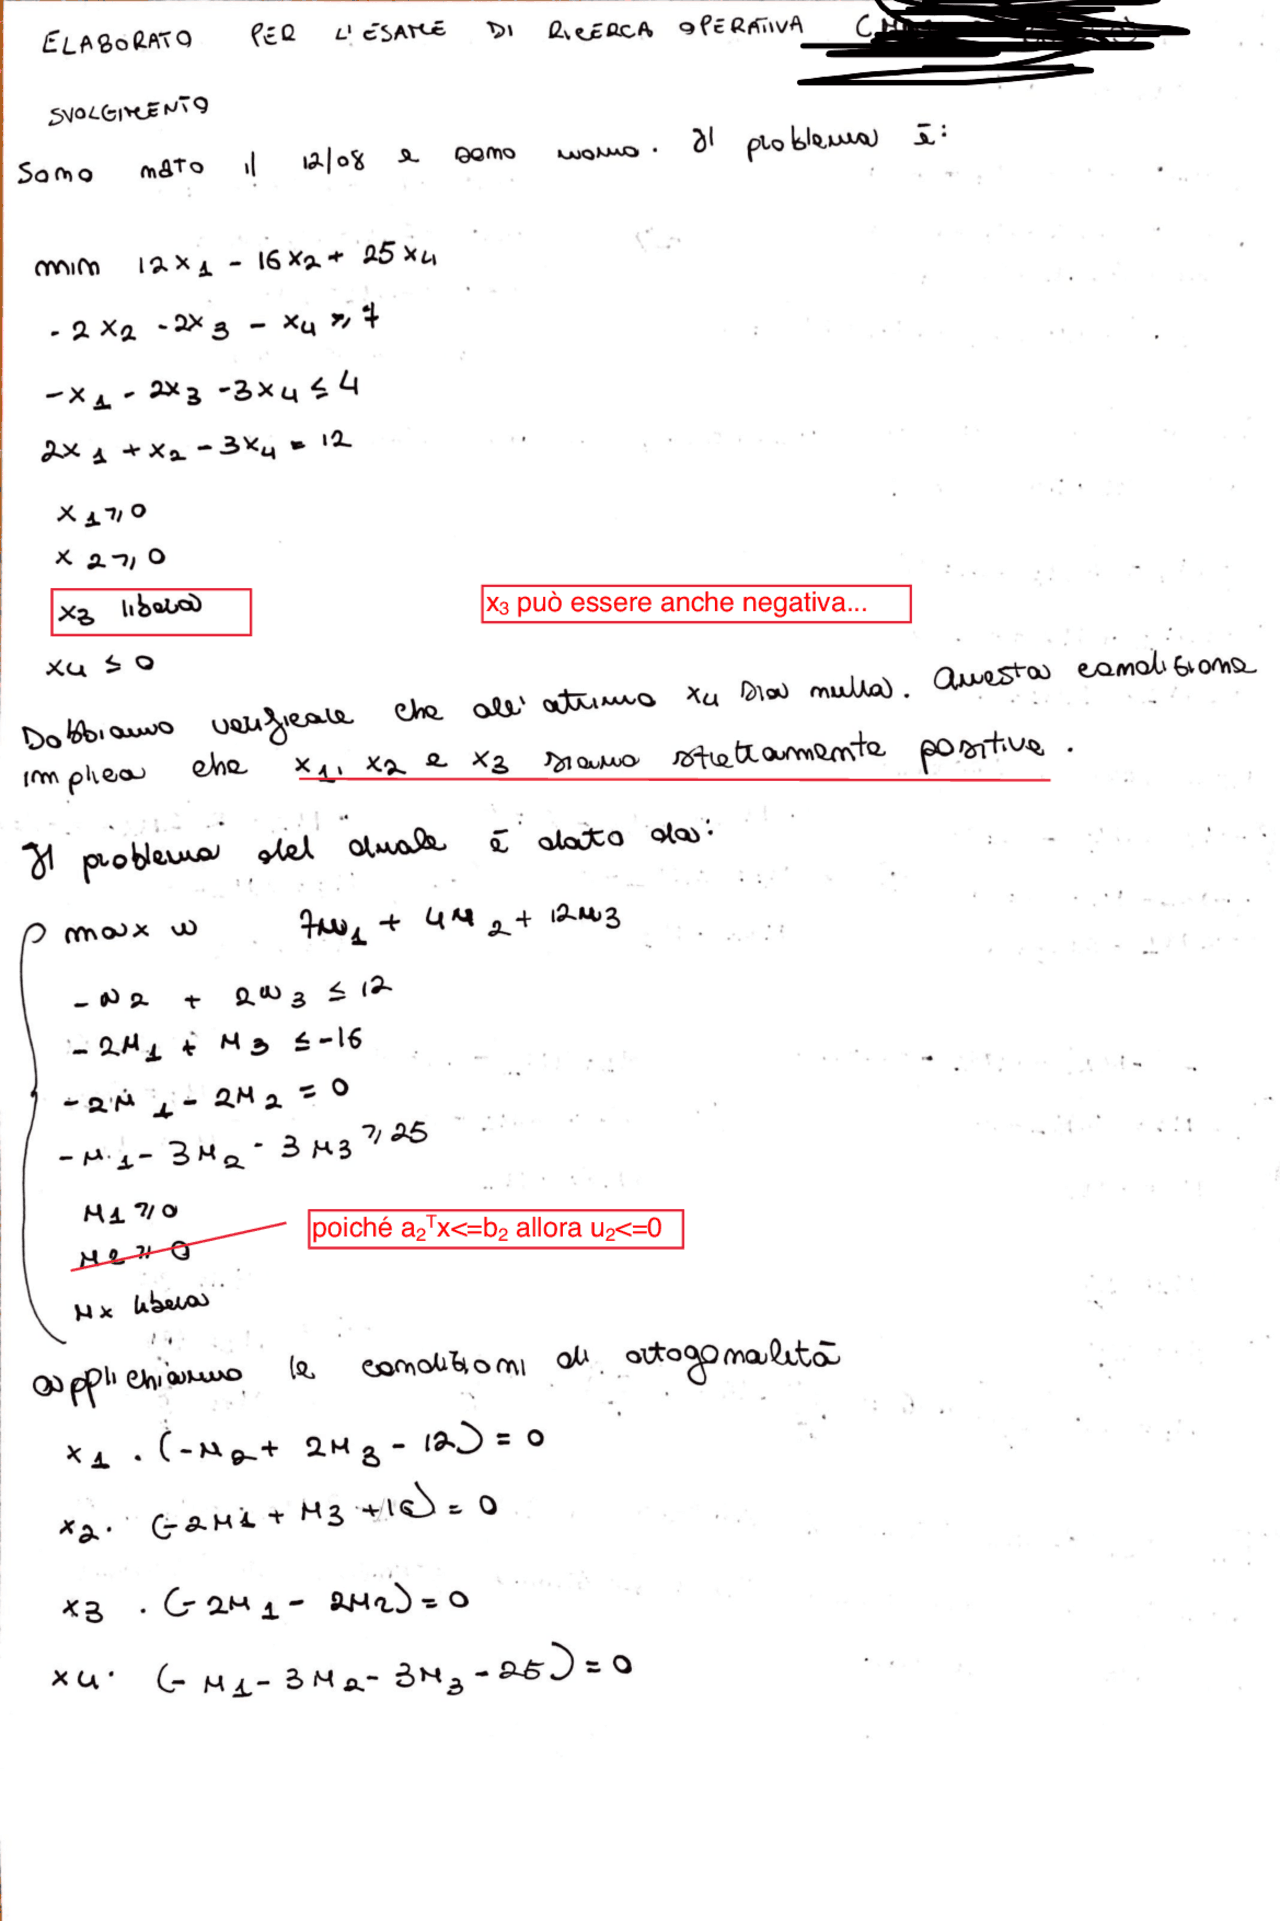 ELABORATO PER L'ESAME DI RICERCA OPERATIVA
SVOLGIMENTO
Sono nato il 12/08 e sono uomo. Il problema è:
min 12x1 - 16x2 + 25x4
-2x2 - 2x3 - x4 ≥ 7
-x1 - 2x3 - 3x4 ≤ 4
2x1 + x2 - 3x4 = 12
x1 ≥ 0
x2 ≥ 0
x3 libera x3 può essere anche negativa...
x4 ≤ 0
Dobbiamo verificare che all'ottimo x4 sia nulla. Questa condizione
implica che x1, x2 e x3 siano strettamente positive.
Il problema del duale è dato da:
max w 7u1 + 4u2 + 12u3
-u2 + 2u3 ≤ 12
-2u1 + u3 ≤ -16
-2u1 - 2u2 = 0
-u1 - 3u2 - 3u3 ≥ 25
u1 ≥ 0
u2 ≥ 0 poiché a2ᵀx<=b2 allora u2<=0
ux libera
applichiamo le condizioni di ortogonalità
x1 · (-u2 + 2u3 - 12) = 0
x2 · (-2u1 + u3 + 16) = 0
x3 · (-2u1 - 2u2) = 0
x4 · (-u1 - 3u2 - 3u3 - 25) = 0